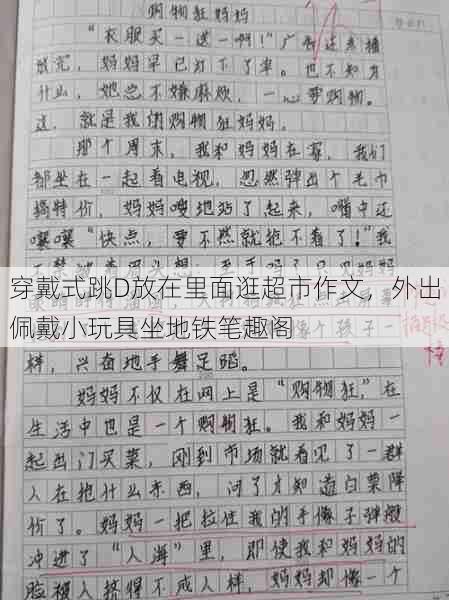 购物狂妈妈
“衣服买一送一啊！”广告还未播
放完，妈妈早已打下了单。也不知为
什么，她总不嫌麻烦，一心要购物。
这，就是我的购物狂妈妈。
那个周末，我和妈妈在家，我们
都坐在一起看电视，忽然弹出个毛巾
搞特价，妈妈嗖地站了起来，嘴中还
嚷嚷“快点，要不然就抢不着了！”我
穿戴式跳D放在里面逛超市作文，外出
佩戴小玩具坐地铁笔趣阁
样，兴奋地手舞足蹈。
妈妈不仅在网上是“购物狂”，在
生活中也是一个购物狂。我和妈妈一
起出门买菜，刚到市场就看见了一群
人在抢什么东西，问了才知道白菜降
价了。妈妈一把拉住我的手像子弹般
冲进了“人海”里，即使我和妈妈的
脸被人挤得不成人样，妈妈却像一个